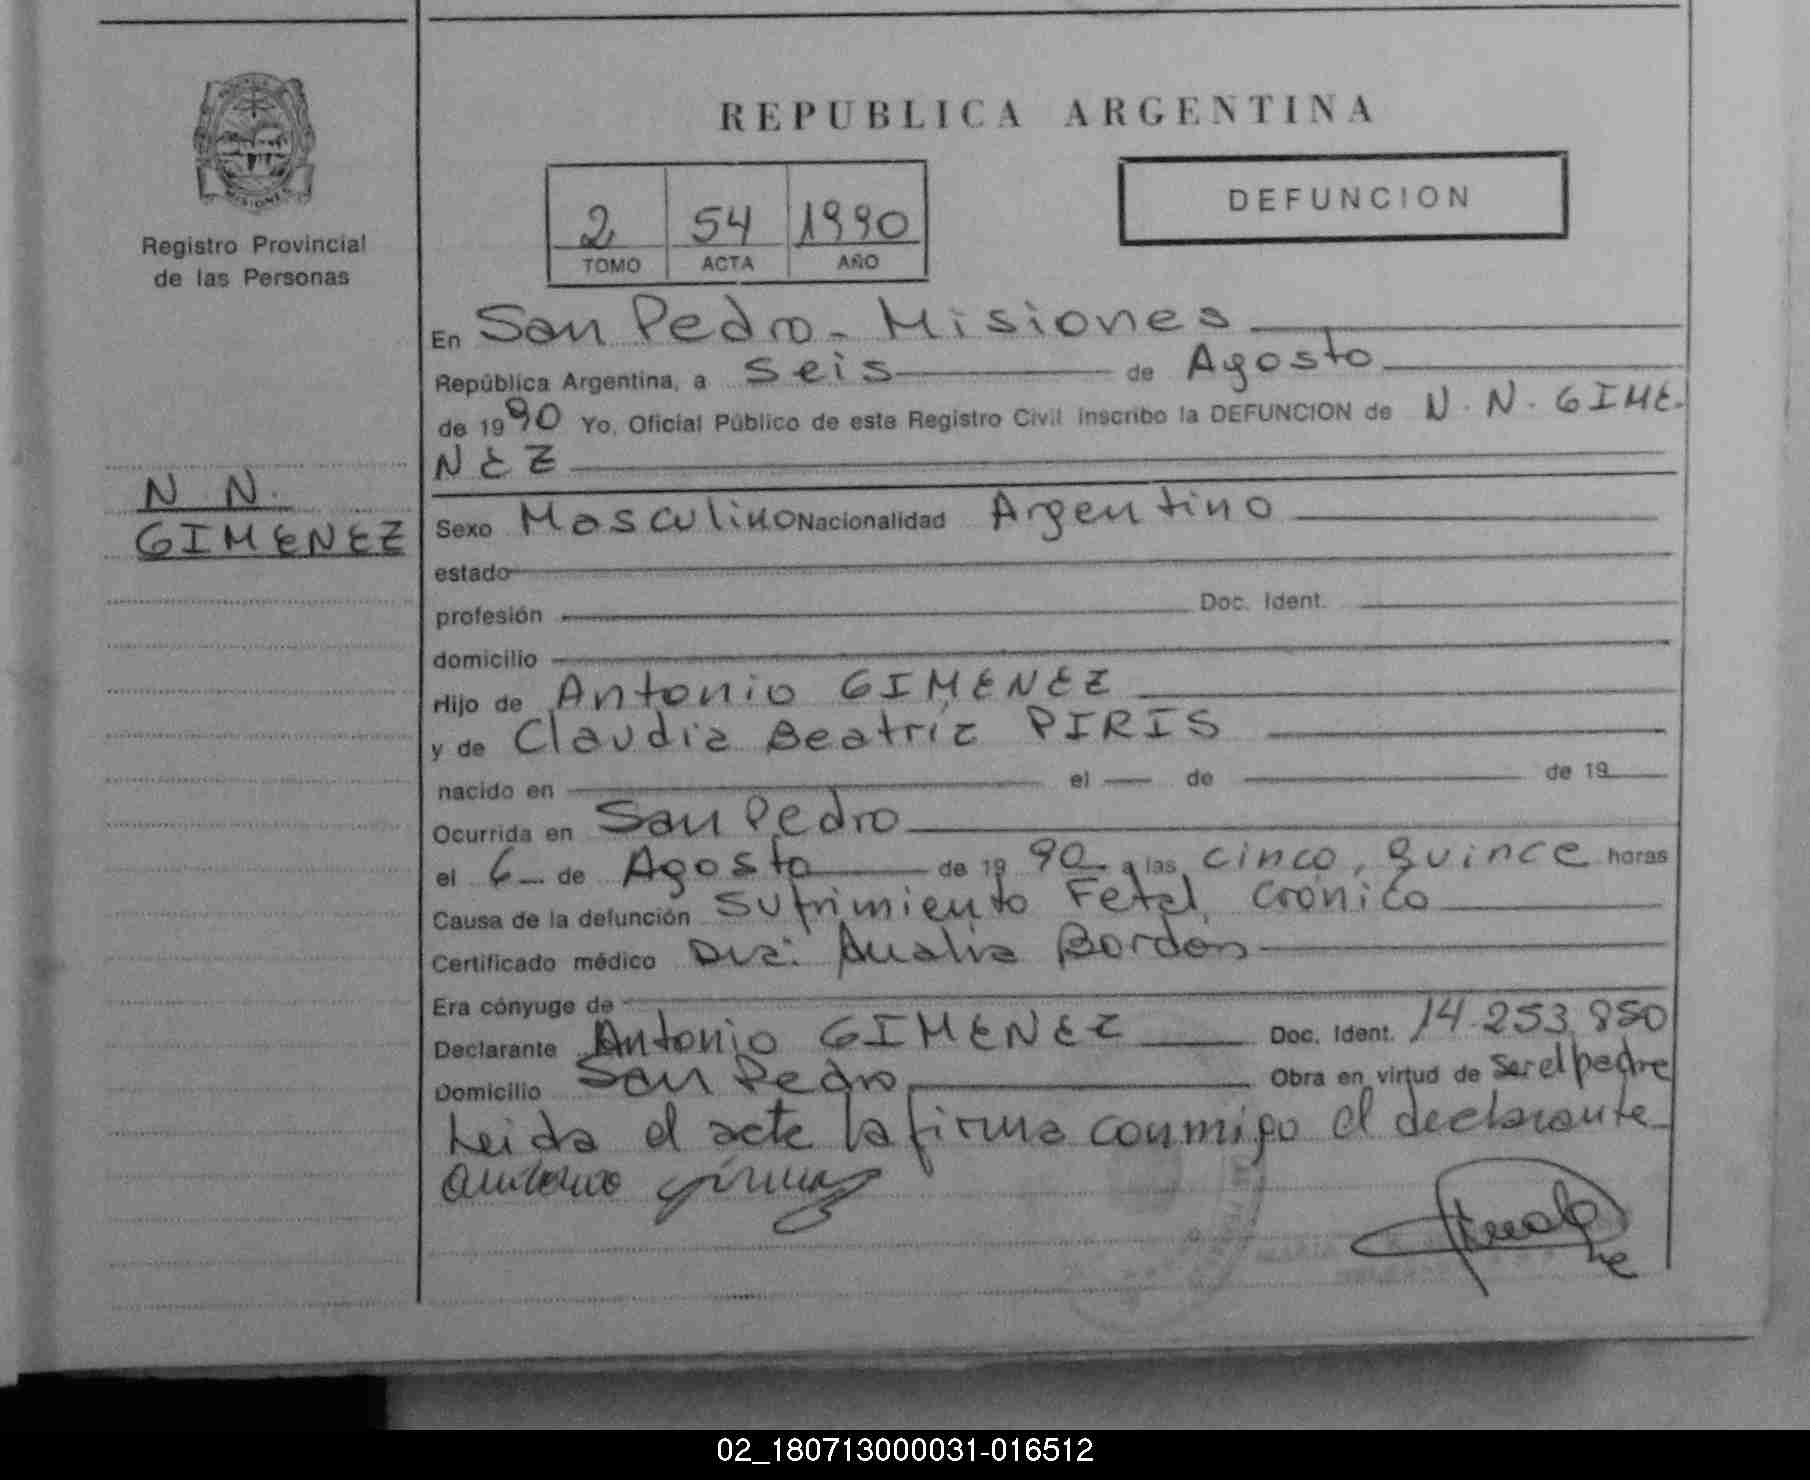 REPUBLICA ARGENTINA
DEFUNCION
2 54 1990
TOMO ACTA AÑO
Registro Provincial
de las Personas
N N.
GIMENEZ
En San Pedro - Misiones
República Argentina, a seis de Agosto
de 1990 Yo, Oficial Público de este Registro Civil inscribo la DEFUNCION de N. N. GIME-
NEZ
Sexo Masculino Nacionalidad Argentino
estado
profesión Doc. Ident.
domicilio
Hijo de Antonio GIMENEZ
y de Claudia Beatriz PIRIS
nacido en el de de 19
Ocurrida en San Pedro
el 6 de Agosto de 1990 a las cinco, quince horas
Causa de la defunción Sufrimiento Fetal Crónico
Certificado médico Dra: Analia Bordón
Era cónyuge de
Declarante Antonio GIMENEZ Doc. Ident. 14.253.850
Domicilio San Pedro Obra en virtud de ser el padre
Leida el acta la firma conmigo el declarante
02_180713000031-016512